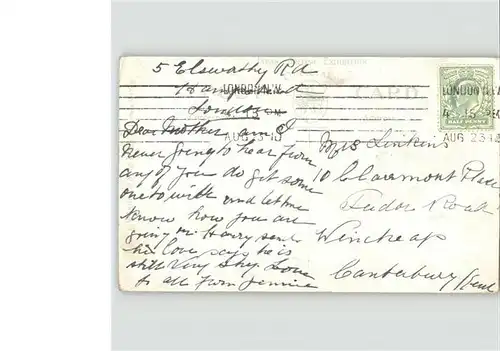 5 Elsworthy Rd
Hampstead
London
CARD
LONDON N.W
4.15 PM
AUG 23 10
LONDON N.W
4.15 PM
AUG 23 10
HALF PENNY
Dear Mother am I
never going to hear from
any of you do get some
one to write and let me
know how you are
going on Henry sends
his love says he is
still very shy Love
to all from Jennie
Mrs Jenkins
10 Claremont Place
Tudor Road
Wincheap
Canterbury Kent